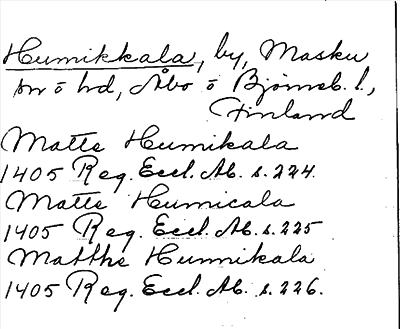 Humikkala, by, Masku
sn o hd, Åbo o Björneb. l.,
Finland
Matts Humikala
1405 Reg. Eccl. Ab. s. 224.
Matts Humicala
1405 Reg. Eccl. Ab. s. 225
Matthe Hunnikala
1405 Reg. Eccl. Ab. s. 226.